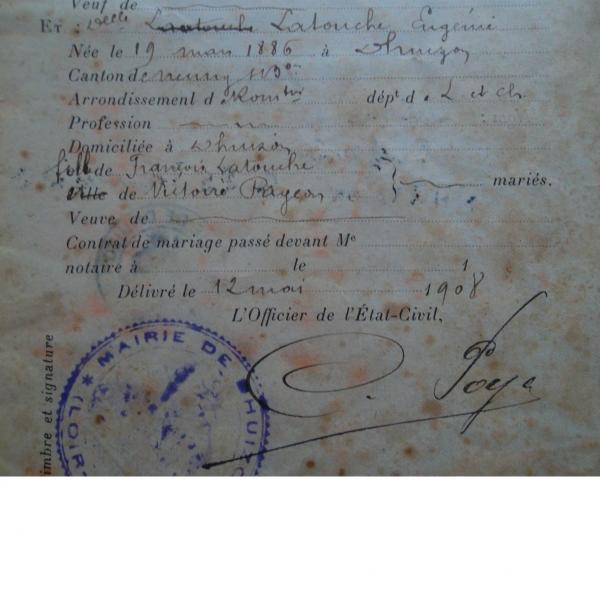 Veuf de
ET : Delle Latouche Latouche Eugénie
Née le 19 mars 1886 à Dhuizon
Canton de neung s/Bon
Arrondissement d. Romtin dépt d. L et Ch.
Profession
Domiciliée à Dhuizon
fille de François Latouche
Ville de Victoire Pageon } mariés.
Veuve de
Contrat de mariage passé devant Me
notaire à le 1
Délivré le 12 mai 1908
L'Officier de l'État-Civil,
C. Poye
imbre et signature
* MAIRIE DE DHUIZON (LOIR-